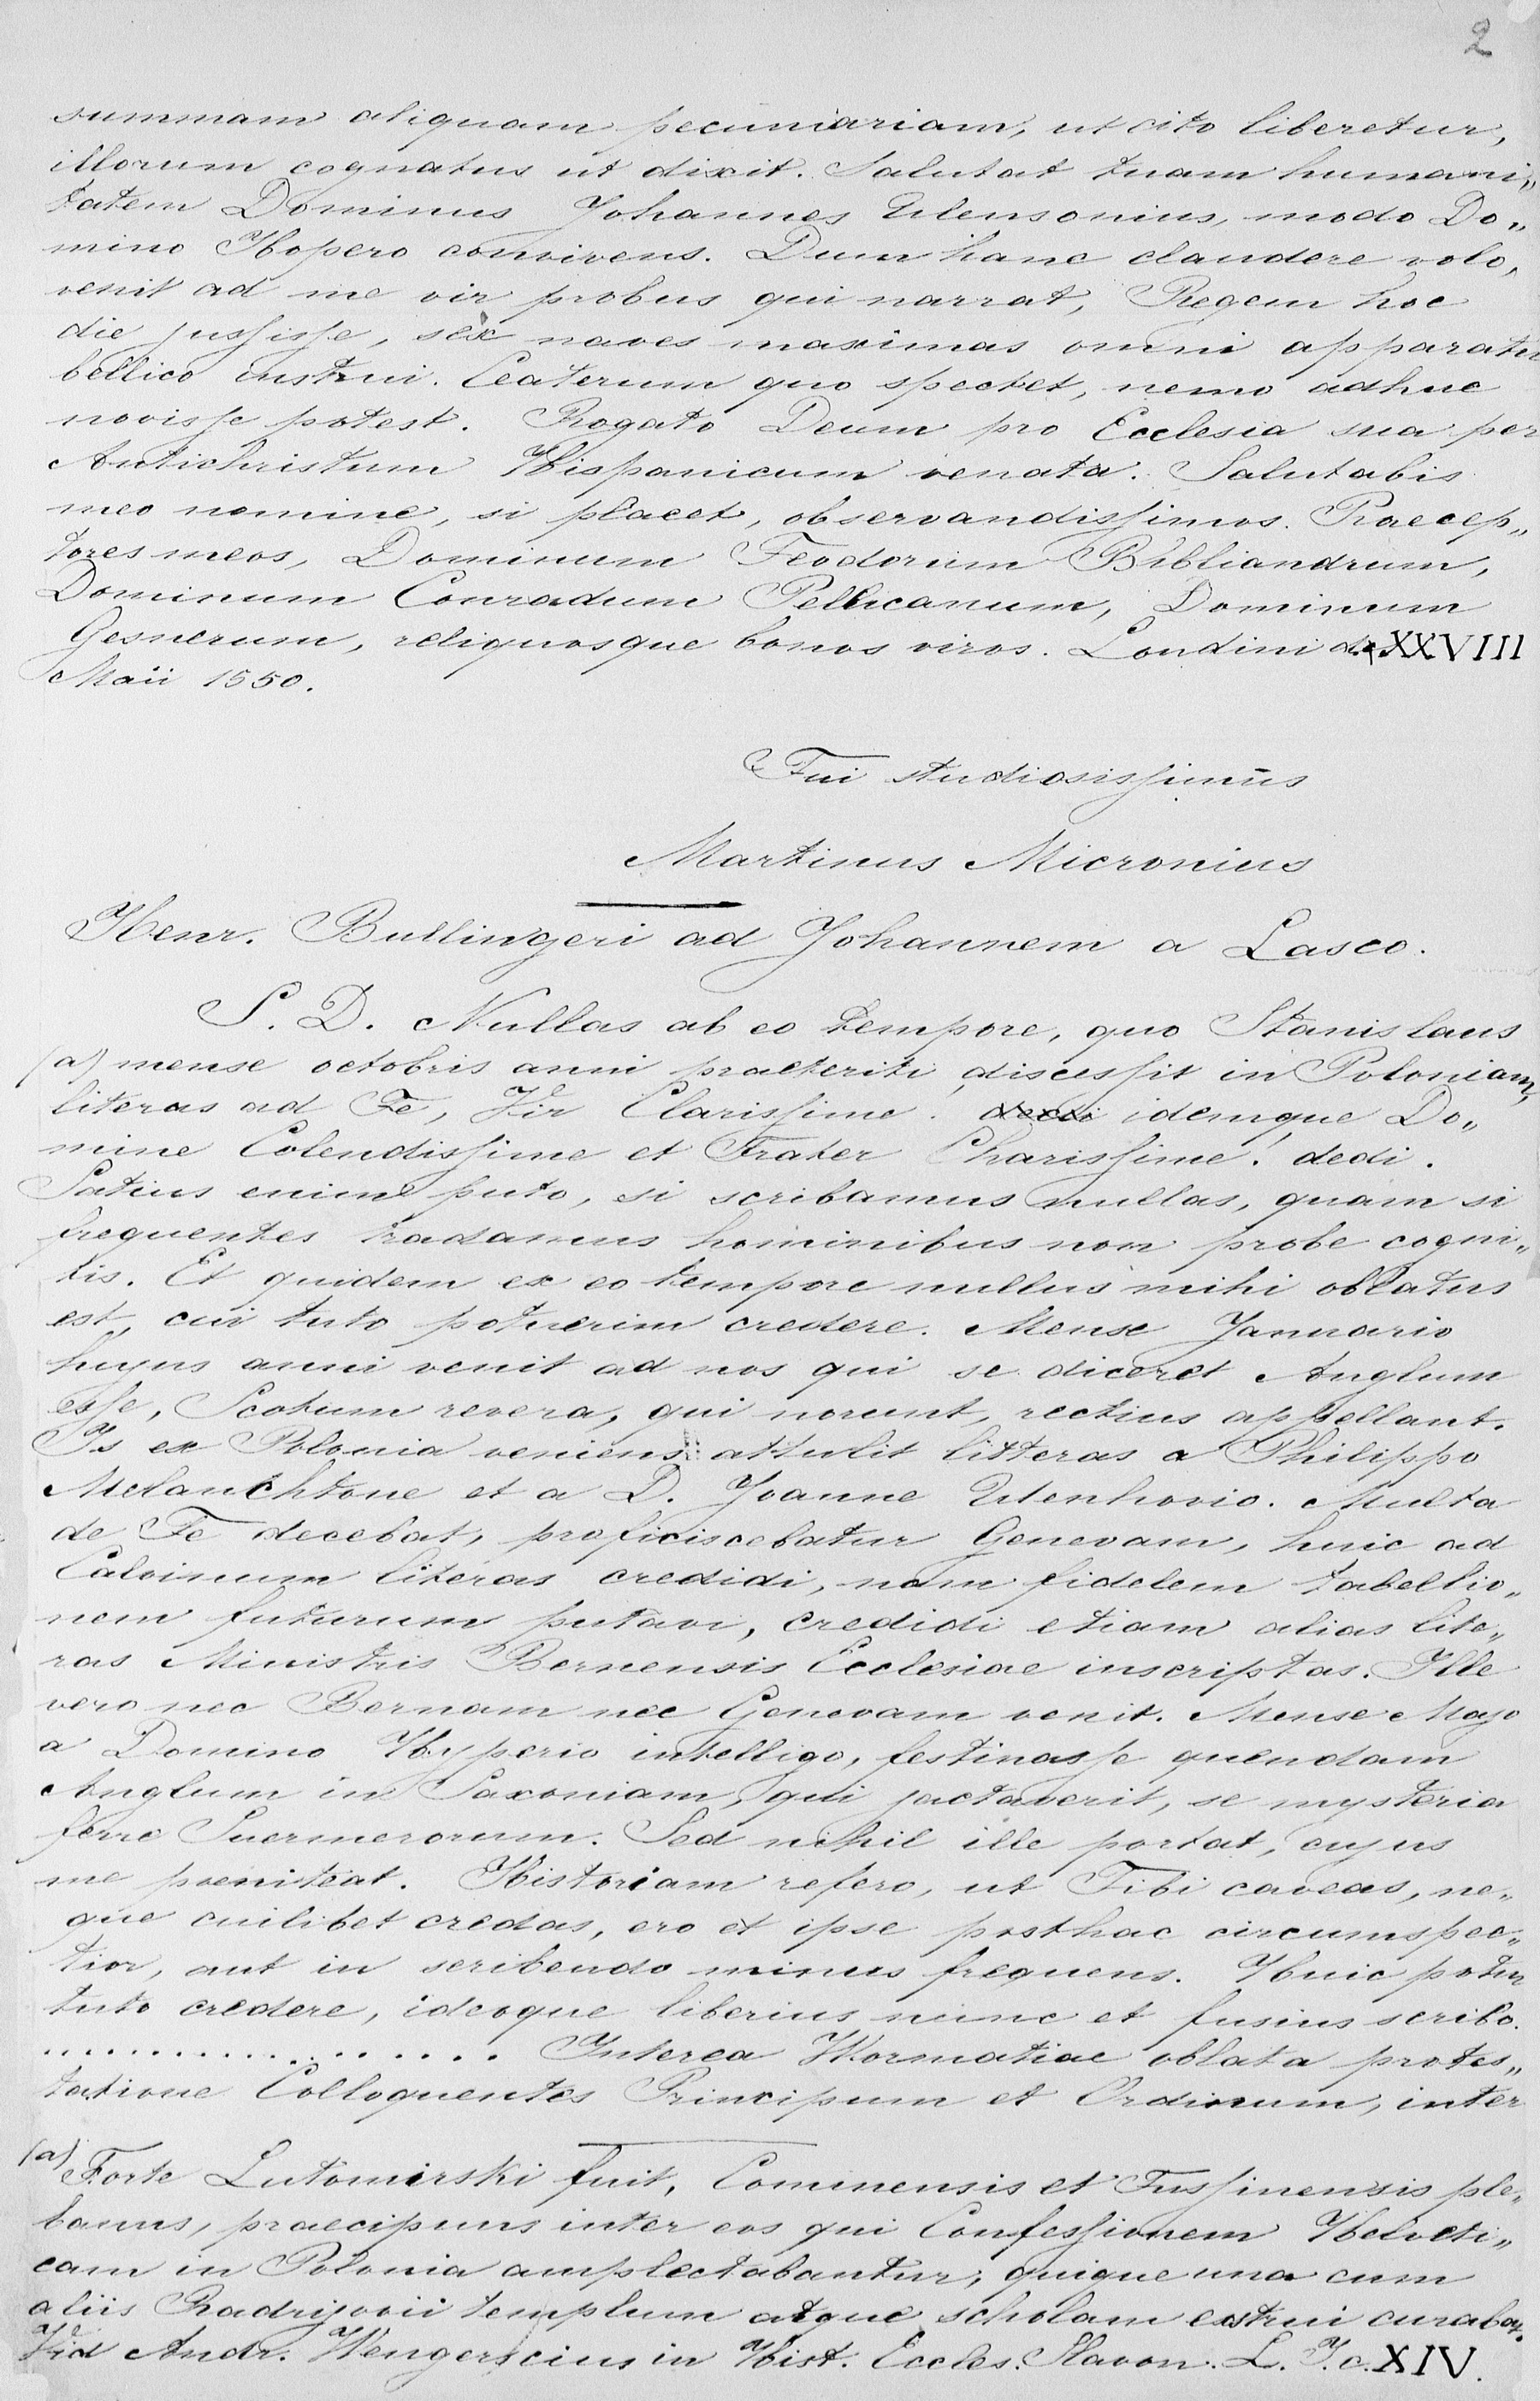 2
summam aliquam pecuniariam, ut cito liberetur,
illorum cognatus ut dixit. Salutat tuam humani„
tatem Dominus Johannes Utensonius, modo Do„
mino Hopero convivens. Dum hanc claudere volo,
venit ad me vir probus qui narrat, Regem hoc
die jussisse, sex naves maximas omni apparatu
bellico instrui. Ceaterum quo spectet, nemo adhuc
novisse potest. Rogato Deum pro Ecclesia sua per
Antichristum Hispanicum venata. Salutabis
meo nomine, si placet, observandissimos Praecep„
tores meos, Dominum Teodorum Bibliandrum,
Dominum Conradum Pellicanum, Dominum
Gesnerum, reliquosque bonos viros. Londini d. XXVIII
Maii 1550.
Tui studiosissimus
Martinus Micronius
Henr. Bullingeri ad Johannem a Lasco.
S. D. Nullas ab eo tempore, quo Stanislaus
(a) mense octobris anni praeteriti discessit in Poloniam,
literas ad Te, Vir Clarissime! idemque Do„
mine Colendissime et Frater Charissime! dedi.
Satius enim puto, si scribamus nullas, quam si
frequentes tradamus hominibus non probe cogni„
tis. Et quidem ex eo tempore nullus mihi oblatus
est, cui tuto potuerim credere. Mense Januario
hujus anni venit ad nos qui se diceret Anglum
esse, Scotum revera, qui norunt, rectius appellant.
Is ex Polonia veniens attulit litteras a Philippo
Melanchtone et a D. Joanne Utenhovio. Multa
de Te decebat, proficiscebatur Genevam, huic ad
Calvinum literas credidi, nam fidelem tabellio„
nem futurum putavi, credidi etiam alias lite„
ras Ministris Bernensis Ecclesiae inscriptas. Ille
vero nec Bernam nec Genevam venit. Mense Majo
a Domino Hyperio intelligo, festinasse quendam
Anglum in Saxoniam, qui jactaverit, se mysteria
ferre Suermerorum. Sed nihil ille portat, cujus
me poeniteat. Historiam refero, ut Tibi caveas, ne„
que cuilibet credas, ero et ipse posthac circumspec„
tior, aut in scribendo minus frequens. Huic potui
tuto credere, ideoque liberius nunc et fusius scribo.
.................. Interea Wormatiae oblata protes„
tatione Colloquentes Principum et Ordinum, inter
(a) Forte Lutomirski fuit, Cominensis et Tussinensis ple„
banus, praecipuus inter eos qui Confessionem Helveti„
cam in Polonia amplectabantur, quique una cum
aliis Radrijovii templum atque scholam exstrui curabat.
Vid Andr. Wengerscius in Hist. Eccles. Slavon. L. I. c. XIV.